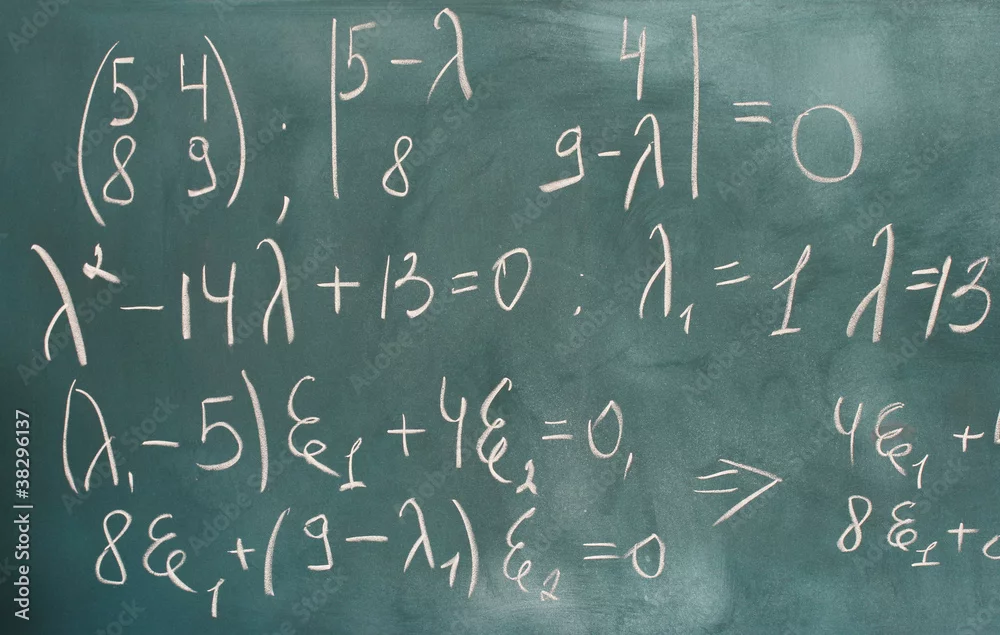 (5 4
8 9); |5-λ 4
8 9-λ| = 0
λ² - 14λ + 13 = 0 : λ₁ = 1 λ = 13
(λ₁ - 5)ξ₁ + 4ξ₂ = 0, ⇒ 4ξ₁ +
8ξ₁ + (9 - λ₁)ξ₂ = 0 8ξ₁ +
Adobe Stock | #38296137